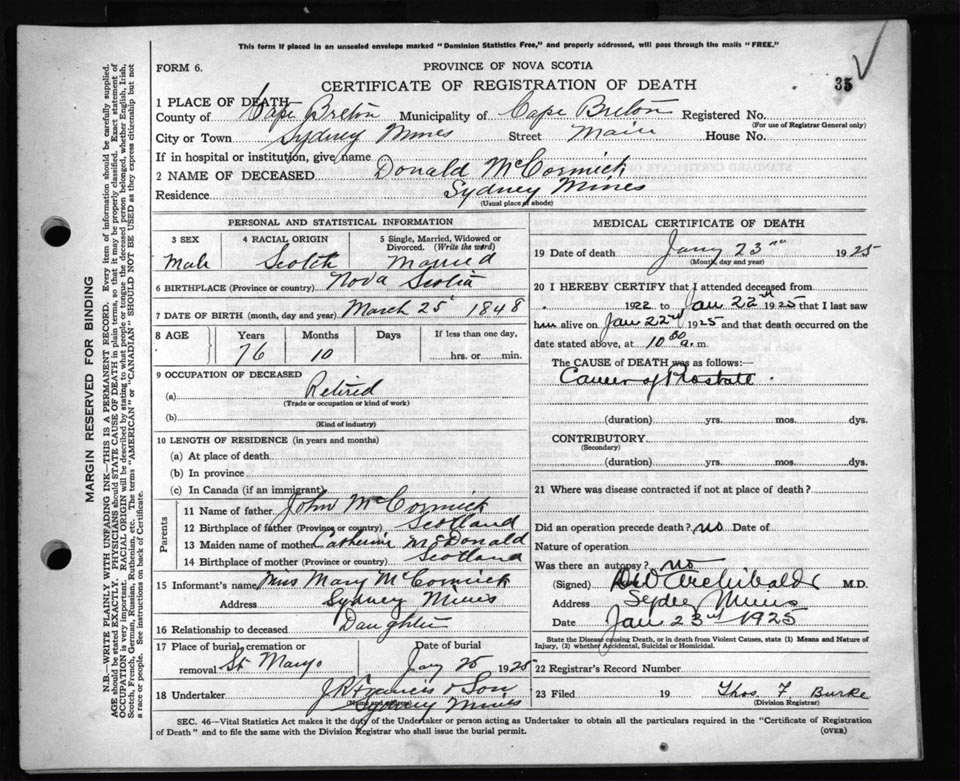 This form if placed in an unsealed envelope marked "Dominion Statistics Free," and properly addressed, will pass through the mails "FREE."
FORM 6.
PROVINCE OF NOVA SCOTIA
CERTIFICATE OF REGISTRATION OF DEATH
35
MARGIN RESERVED FOR BINDING
N.B.—WRITE PLAINLY WITH UNFADING INK—THIS IS A PERMANENT RECORD. Every item of information should be carefully supplied.
AGE should be stated EXACTLY. PHYSICIANS should STATE CAUSE OF DEATH in plain terms, so that it may be properly classified. Exact statement of
OCCUPATION is very important. RACIAL ORIGIN will be described by stating to what people or tongue the deceased person belonged, whether English, Irish,
Scotch, French, German, Russian, Ruthenian, etc. The terms "AMERICAN" or "CANADIAN" SHOULD NOT BE USED as they express citizenship but not
a race or people. See instructions on back of Certificate.
1 PLACE OF DEATH
County of Cape Breton Municipality of Cape Breton Registered No.
(For use of Registrar General only)
City or Town Sydney Mines Street Main House No.
If in hospital or institution, give name
2 NAME OF DECEASED Donald McCormick
Residence Sydney Mines
(Usual place of abode)
PERSONAL AND STATISTICAL INFORMATION
3 SEX Male
4 RACIAL ORIGIN Scotch
5 Single, Married, Widowed or Divorced. (Write the word) Married
6 BIRTHPLACE (Province or country) Nova Scotia
7 DATE OF BIRTH (month, day and year) March 25 1848
8 AGE Years Months Days If less than one day,
76 10 hrs. or min.
9 OCCUPATION OF DECEASED
(a) Retired
(Trade or occupation or kind of work)
(b)
(Kind of industry)
10 LENGTH OF RESIDENCE (in years and months)
(a) At place of death
(b) In province
(c) In Canada (if an immigrant)
Parents
11 Name of father John McCormick
12 Birthplace of father (Province or country) Scotland
13 Maiden name of mother Catherine McDonald
14 Birthplace of mother (Province or country) Scotland
15 Informant's name Miss Mary McCormick
Address Sydney Mines
16 Relationship to deceased Daughter
17 Place of burial, cremation or removal St Marys
Date of burial Jany 25 1925
18 Undertaker J R Francis & Son
(Name and address) Sydney Mines
MEDICAL CERTIFICATE OF DEATH
19 Date of death Jany 23rd 1925
(Month, day and year)
20 I HEREBY CERTIFY that I attended deceased from
1922 to Jan 22nd 1925 that I last saw
him alive on Jan 22nd 1925 and that death occurred on the
date stated above, at 10 30 a.m.
The CAUSE OF DEATH was as follows:—
Cancer of Prostate.
(duration) yrs. mos. dys.
CONTRIBUTORY
(Secondary)
(duration) yrs. mos. dys.
21 Where was disease contracted if not at place of death?
Did an operation precede death? no Date of
Nature of operation
Was there an autopsy? no
(Signed) Archibald M.D.
Address Sydney Mines
Date Jan 23rd 1925
State the Disease causing Death, or in death from Violent Causes, state (1) Means and Nature of
Injury, (2) whether Accidental, Suicidal or Homicidal.
22 Registrar's Record Number
23 Filed 19 Thos F Burke
(Division Registrar)
SEC. 46—Vital Statistics Act makes it the duty of the Undertaker or person acting as Undertaker to obtain all the particulars required in the "Certificate of Registration
of Death" and to file the same with the Division Registrar who shall issue the burial permit.
(OVER)